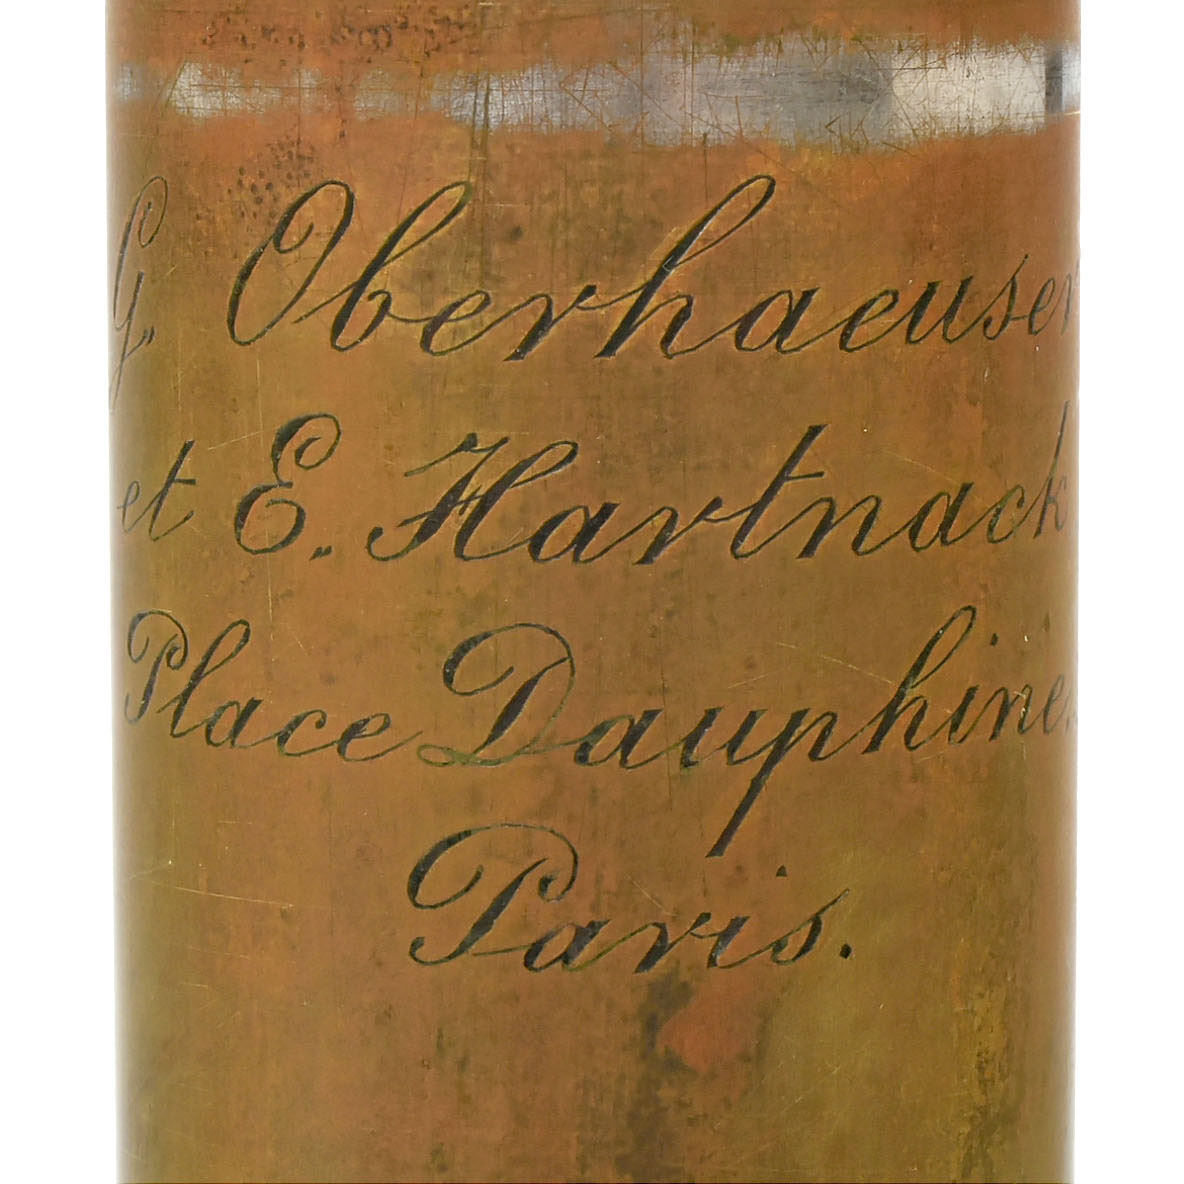 G. Oberhaeuser
et E. Hartnack
Place Dauphine.
Paris.